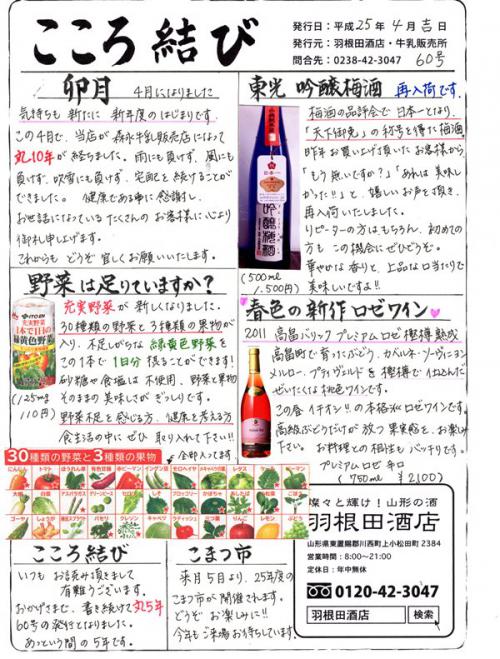 こころ結び
発行日：平成25年4月吉日
発行元：羽根田酒店・牛乳販売所
問合先：0238-42-3047 60号
卯月 4月になりました
気持ちも新たに 新年度のはじまりです
この4月で、当店が森永牛乳販売店になって
丸10年が経ちました。雨にも負けず、風にも
負けず、吹雪にも負けず、宅配を続けることが
できました。健康とある事に感謝し、
お世話になっているたくさんのお客様に心より
御礼申し上げます。
これからもどうぞ宜しくお願いいたします。
東光 吟醸梅酒 再入荷です。
梅酒の品評会で日本一となり、
「天下御免」の称号を得た梅酒。
昨年お買い上げ頂いたお客様から
「もう無いですか？」「あれは美味し
かった!!」と、嬉しいお声を頂き、
再入荷いたしました。
リピーターの方はもちろん、初めての
方もこの機会にぜひどうぞ。
華やかな香りと、上品な口当たりで
美味しいですよ!!
(500ml 1,500円)
野菜は足りていますか？
充実野菜が新しくなりました。
30種類の野菜と3種類の果物が
入り、不足しがちな緑黄色野菜を
この1本で1日分採ることができます!
砂糖や食塩は不使用、野菜と果物
そのままの美味しさがぎっしりです。
野菜不足を感じる方、健康を考える方
食生活の中にぜひ取り入れて下さい!!
全部入ってます。
(125ml 110円)
ITO EN
充実野菜
1本で1日分の
緑黄色野菜
春色の新作ロゼワイン
2011 高畠バリック プレミアムロゼ樫樽熟成
高畠町で育ったぶどう、カベルネ・ソーヴィニヨン
メルロー、プティヴェルドを樫樽で仕込んだ
ぜいたくな桃色ワインです。
この春イチオシ!!の本格派ロゼワインです。
高級ぶどうだけが放つ果実感を、お楽しみ
下さい。お料理との相性もバッチリです。
プレミアムロゼ 辛口
(750ml ¥2,100)
30種類の野菜と3種類の果物
にんじん トマト ほうれん草 有色甘藷 赤ピーマン インゲン豆 モロヘイヤ メキャベツの葉 レタス ケール
大根 白菜 アスパラガス グリーンピース セロリ しそ ブロッコリー かぼちゃ あしたば 小松菜 ごぼう
ゴーヤ しょうが 緑豆スプラウト パセリ クレソン キャベツ ラディッシュ 三つ葉 りんご レモン ぶどう
こころ結び
いつもお読み頂きまして
有難うございます。
おかげさまで、書き続けて丸5年
60号の発行となりました。
あっという間の5年です。
こまつ市
来月5日より、25年度の
こまつ市が開催されます。
どうぞお楽しみに!!
今年もご来場お待ちしています。
燦々と輝け！山形の酒
羽根田酒店
山形県東置賜郡川西町上小松田町2384
営業時間：8:00～21:00
定休日：年中無休
0120-42-3047
羽根田酒店 検索